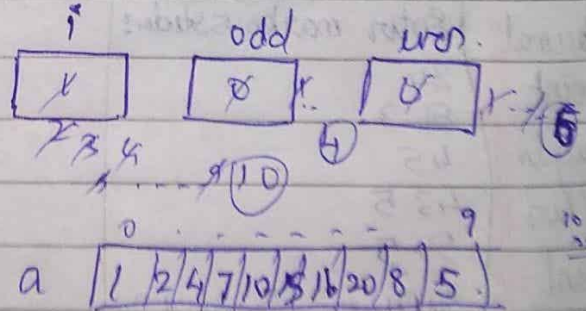 i odd even.
1 0 1.. 0 1..
2 3 4 4 6
5 . . . . 9 10
0 . - - - - - . 9
a 1 2 4 7 10 15 16 20 8 5